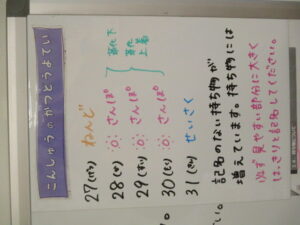 こんしゅうのかつどうよてい
27(げつ) ねんど
28(か) さんぽ
29(すい) さんぽ
30(もく) さんぽ
31(きん) せいさく
薄着
上着
記名のない持ち物が
増えています。持ち物には
必ず見やすい部分に大きく
はっきりと記名してください。